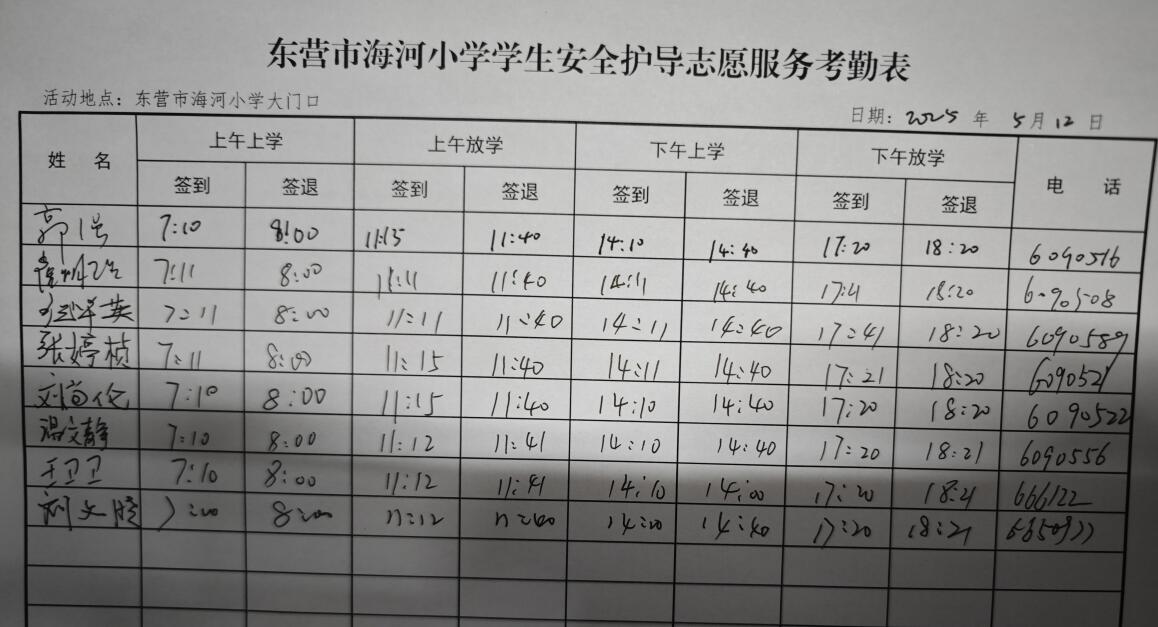 东营市海河小学学生安全护导志愿服务考勤表
活动地点：东营市海河小学大门口 日期：2025 年 5月12日
姓 名 上午上学 上午放学 下午上学 下午放学 电 话
签到 签退 签到 签退 签到 签退 签到 签退
郭 7:10 8:00 11:15 11:40 14:10 14:40 17:20 18:20 6090516
7:11 8:00 11:11 11:40 14:11 14:40 18:20 6090508
英 7:11 8:00 11:11 11:40 14:11 14:40 17:41 18:20 6090589
张婷桢 7:11 8:00 11:15 11:40 14:11 14:40 17:21 18:20 609052
刘尚伦 7:10 8:00 11:15 11:40 14:10 14:40 17:20 18:20 6090522
温文静 7:10 8:00 11:12 11:41 14:10 14:40 17:20 18:21 6090556
王卫卫 7:10 8:00 11:12 11:41 14:10 14:00 17:20 18:21 666122
刘文 8:00 11:12 11:40 14:40 17:20 18:21